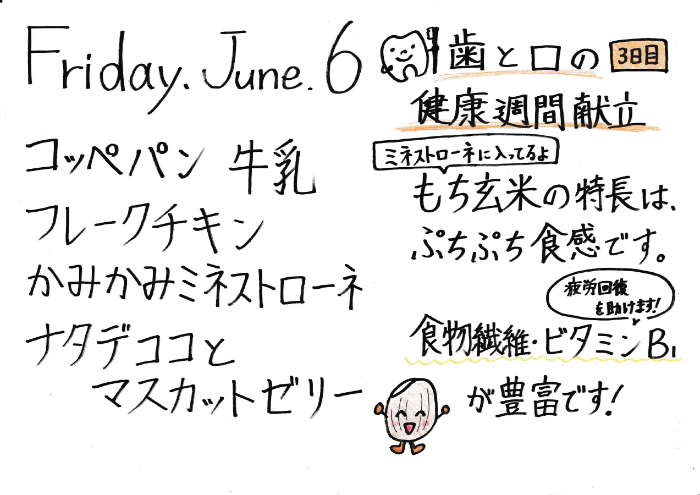 Friday. June. 6
コッペパン 牛乳
フレークチキン
かみかみミネストローネ
ナタデココと
マスカットゼリー
歯と口の 3日目
健康週間献立
ミネストローネに入ってるよ
もち玄米の特長は、
ぷちぷち食感です。
疲労回復
を助けます!
食物繊維・ビタミンB1
が豊富です!